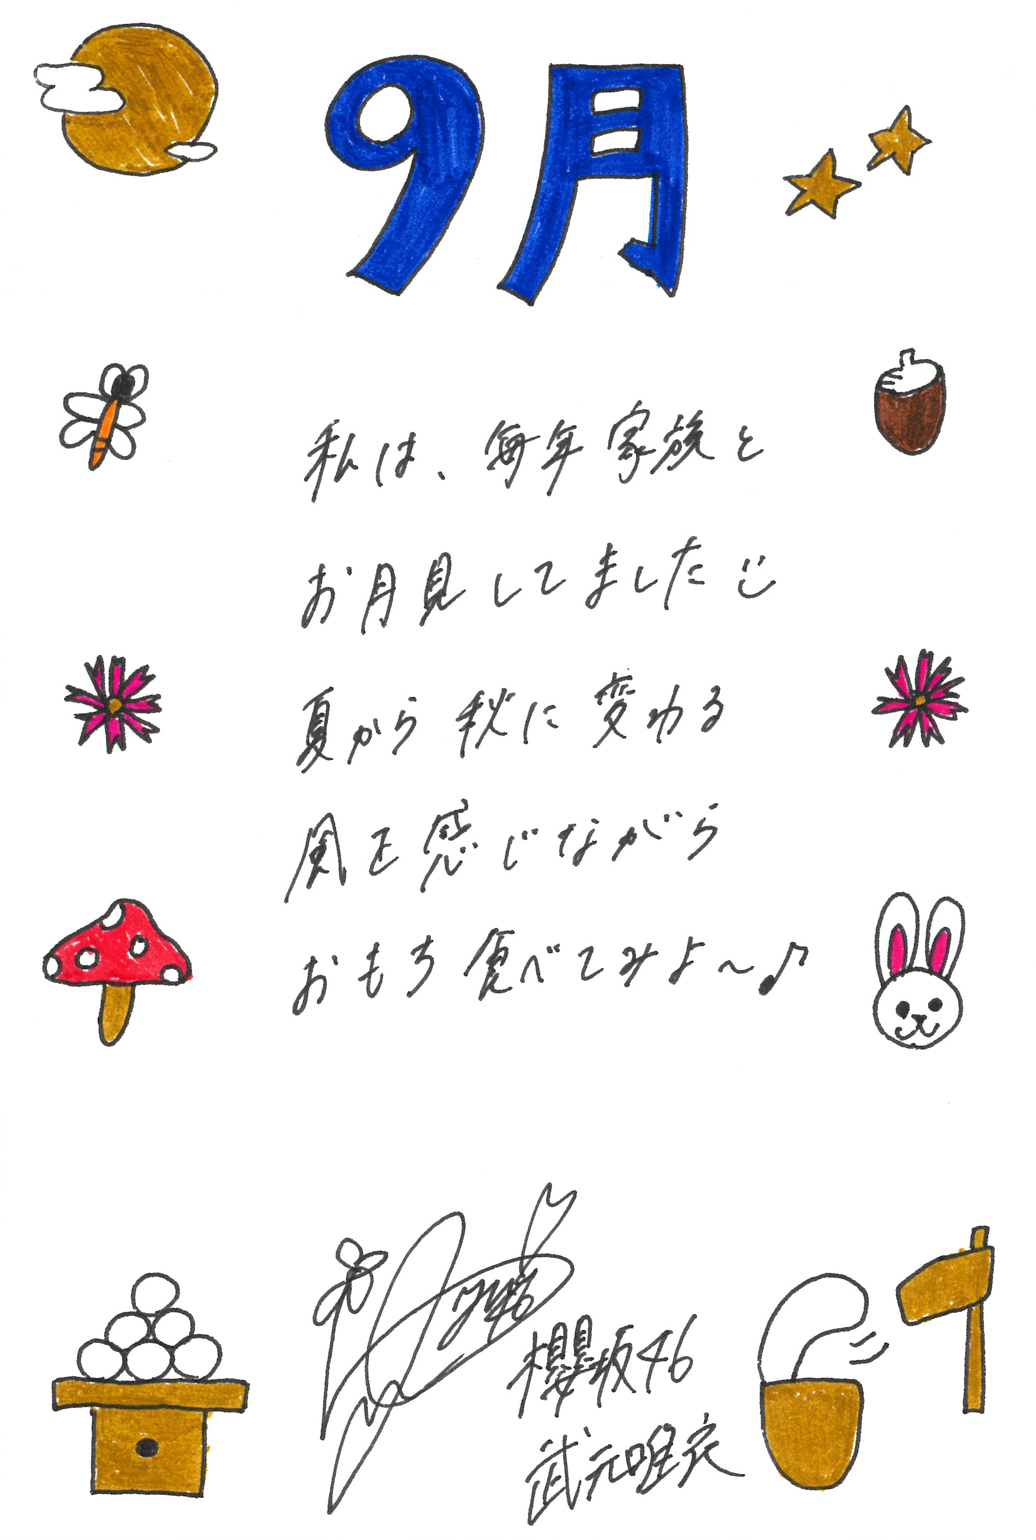 9月
私は、毎年家族と
お月見してました
夏から秋に変わる
風を感じながら
おもち食べてみよ〜♪
櫻坂46
武元唯衣